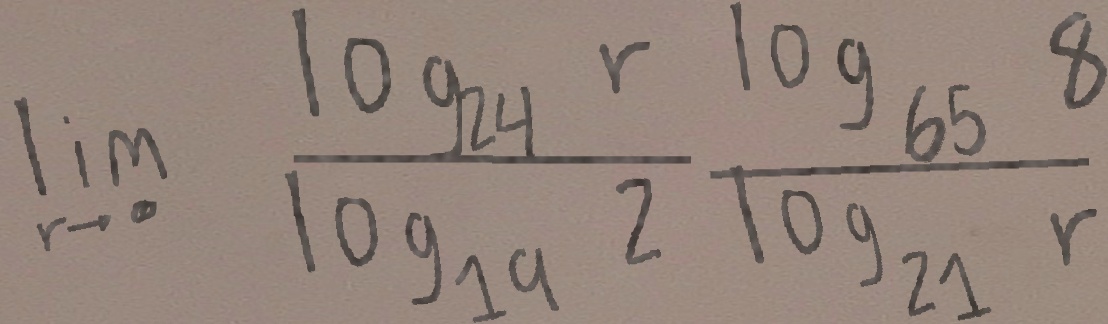 lim r→∞ log₂₄ r / log₁₉ 2 log₆₅ 8 / log₂₁ r